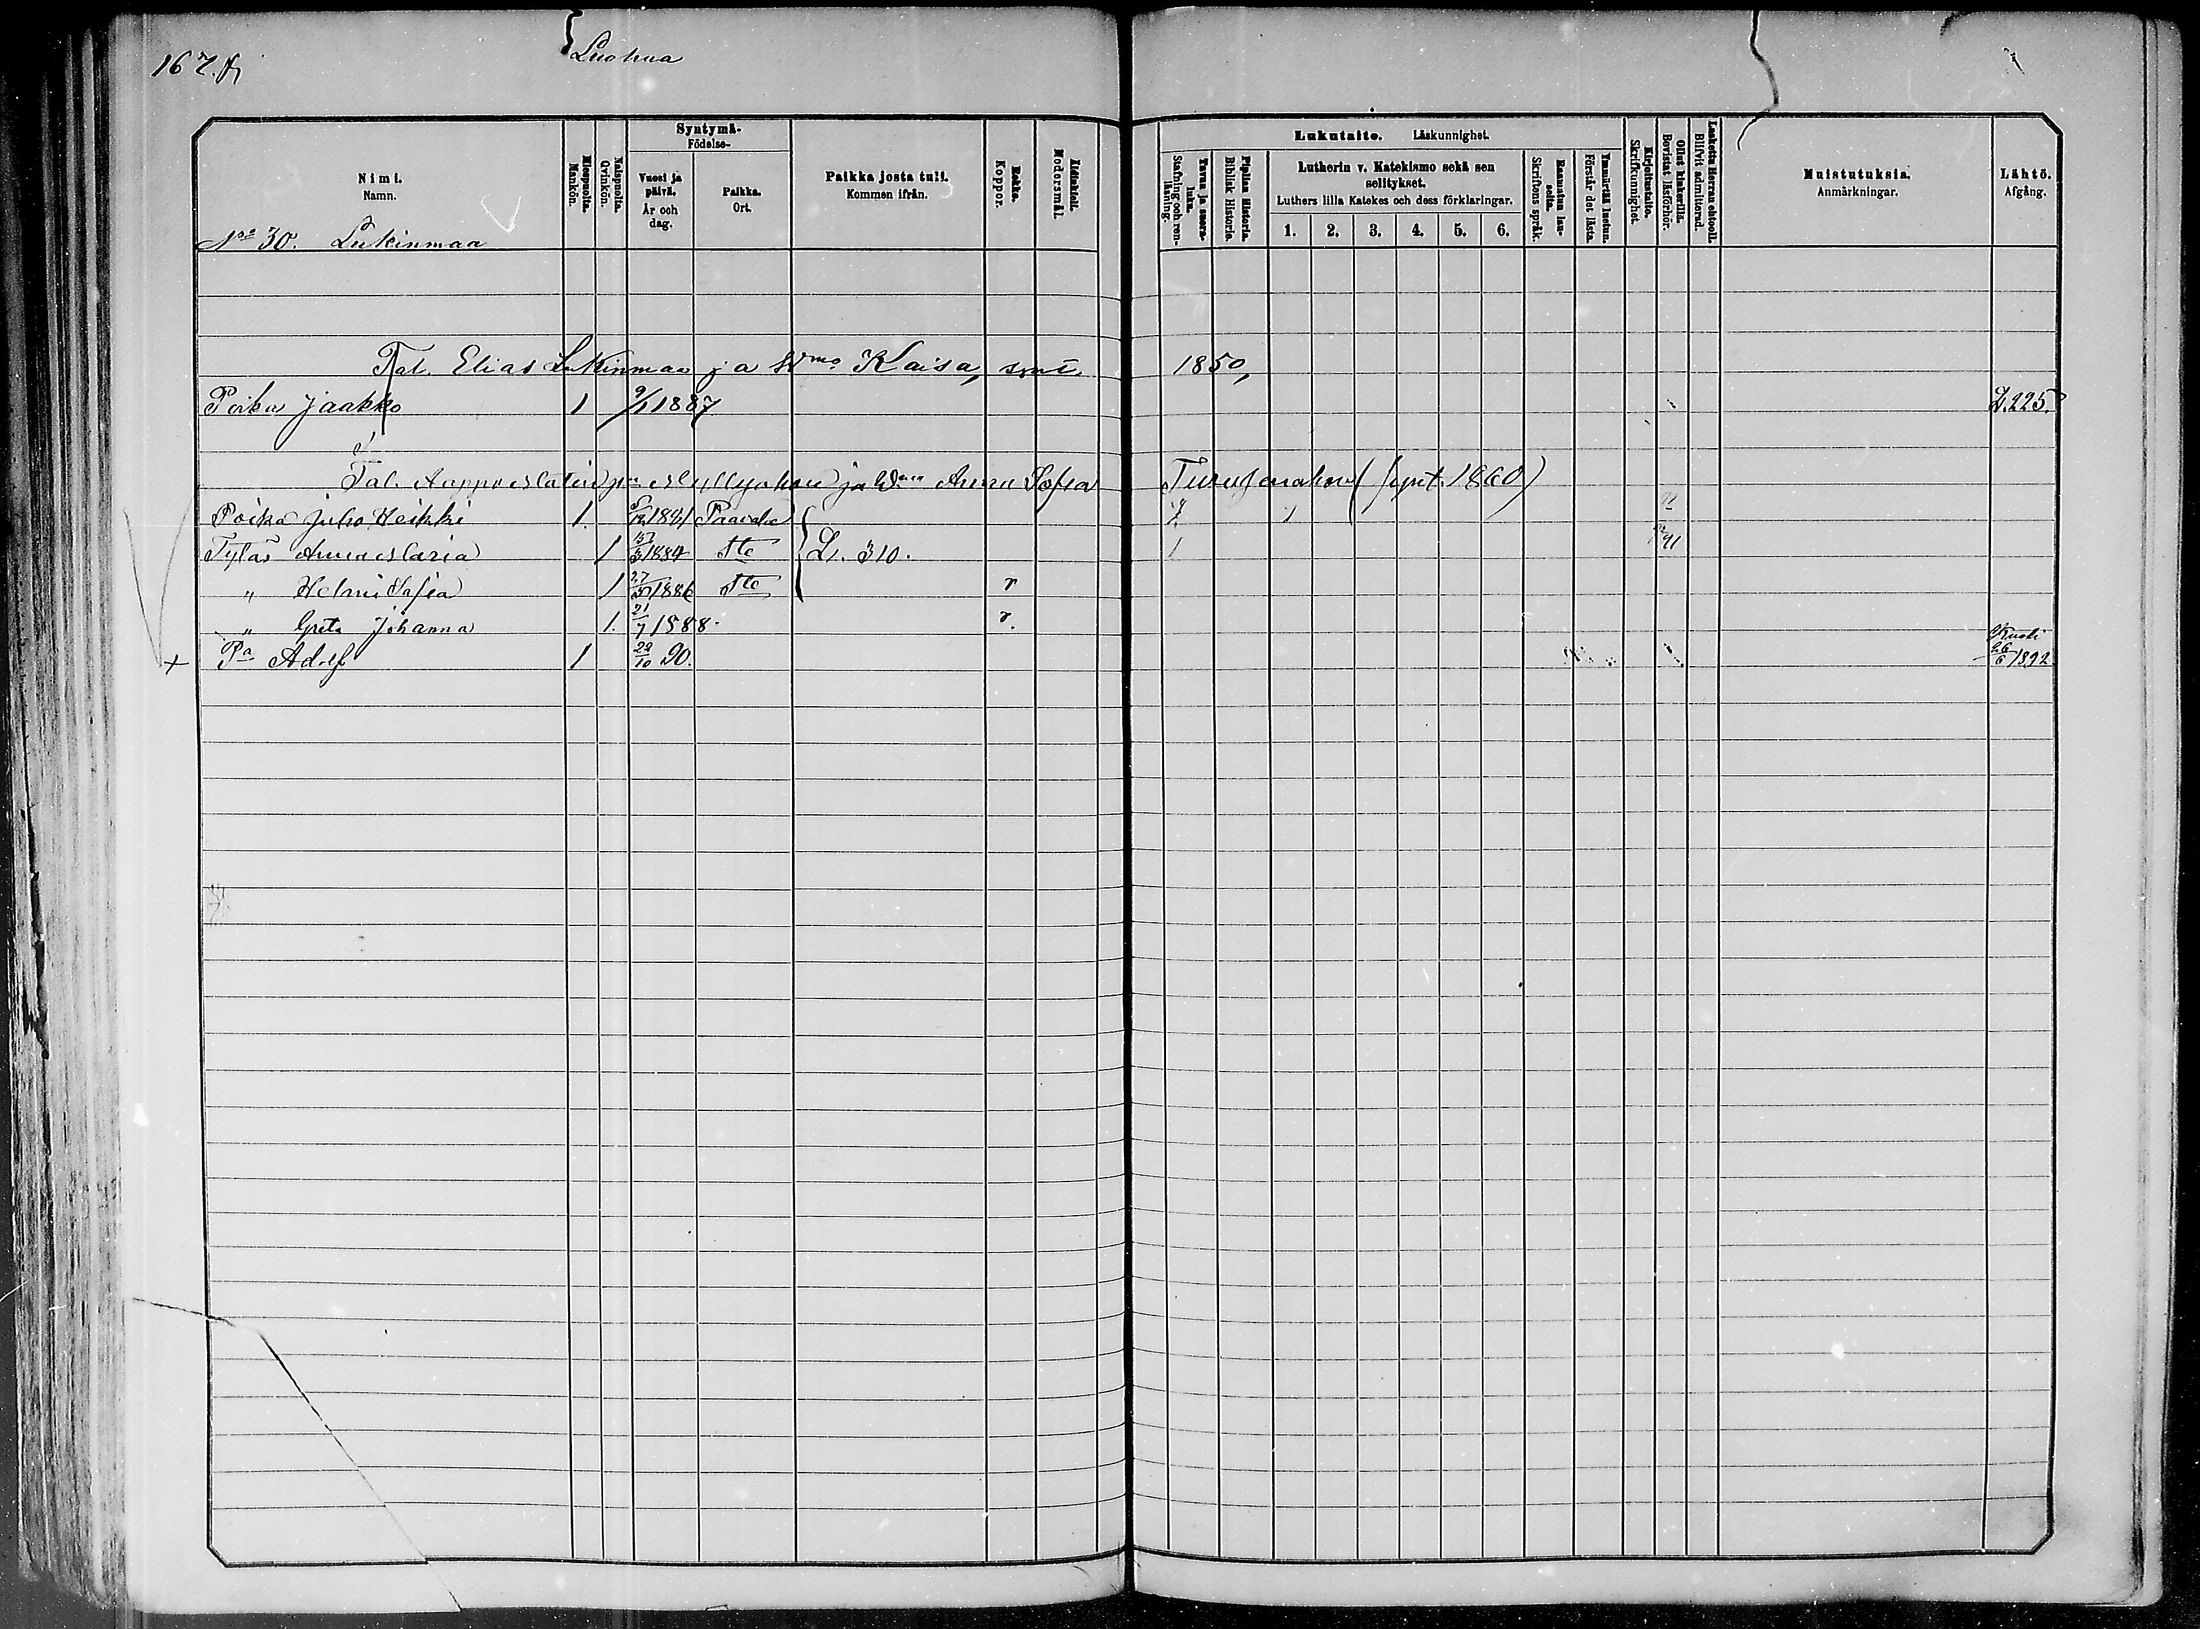 167.
Luohua
Nimi.
Namn.
Miespuolia.
Mankön.
Naispuolia.
Qvinkön.
Syntymä-
Födelse-
Vuosi ja päivä.
År och dag.
Paikka.
Ort.
Paikka josta tuli.
Kommen ifrån.
Rokko.
Koppor.
Äidinkieli.
Modersmål.
Lukutaito. Läskunnighet.
Tavaa ja suora-luku.
Stafning och ren-läsning.
Piplian Historia.
Biblisk Historie.
Lutherin v. Katekismo sekä sen selitykset.
Luthers lilla Katekes och dess förklaringar.
1. 2. 3. 4. 5. 6.
Raamatun lau-seita.
Skriftens språk.
Ymmärtää luetun.
Förstår det lästa.
Kirjoitustaito.
Skrifkunnighet.
Ollut kinkerillä.
Bevistat läsförhör.
Laskettu Herran ehtool.
Blifvit admitterad.
Muistutuksia.
Anmärkningar.
Lähtö.
Afgång.
No 30. Lukinmaa
Tal. Elias Lukinmaa ja Wmo Kaisa, synt. 1850,
Poika Jaakko 1 9/1 1887 L. 225.
Tal. Aappo Matin pa Myllyahon ja Wmo Anna Sofia (synt. 1860)
Poika Juho Heikki 1. Paavola
Tytär Anna Maria 1 1884 L. 310. 1 91
" Helmi Sofia 1 27 1886 r
" Greta Johanna 1. 21/7 1888. r.
+ Pa Adolf 1 29/10 90. Kuoli 26/6 1892